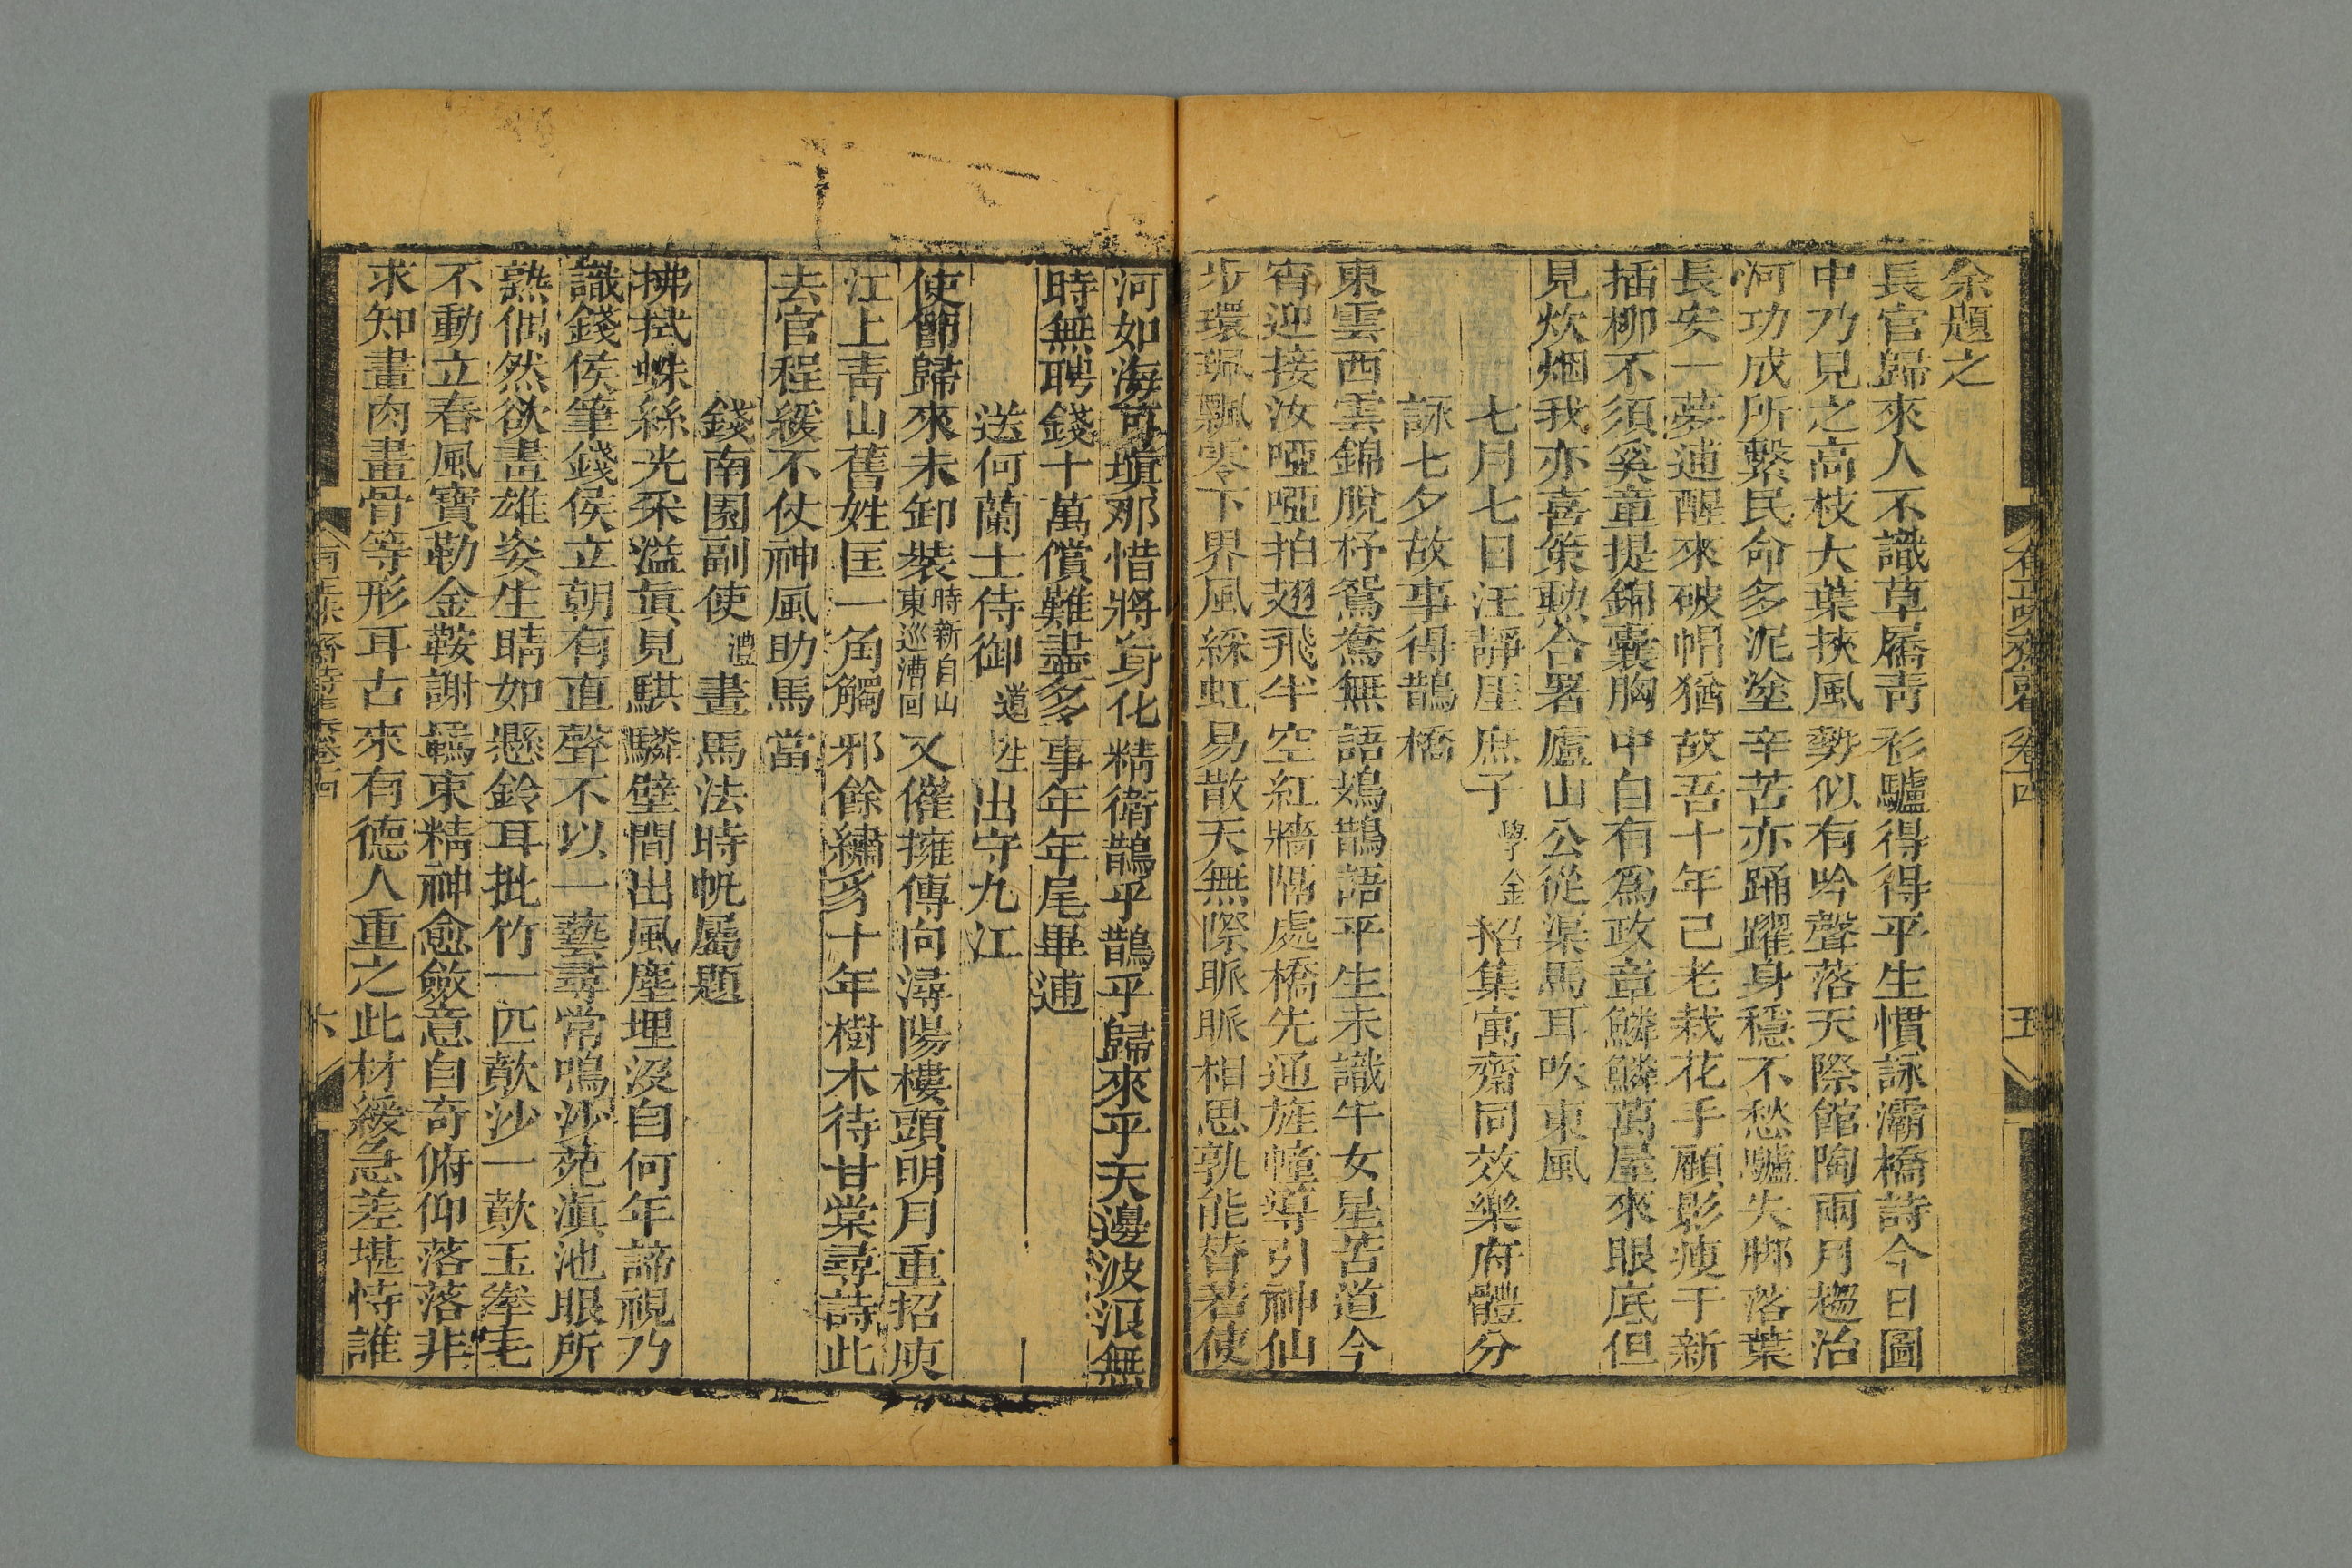 余題之
長官歸來人不識草屩靑衫驢得得平生慣詠灞橋詩今日圖
中乃見之高枝大葉挾風勢似有吟聲落天際館陶兩月趨治
河功成所繫民命多泥塗辛苦亦踊躍身穩不愁驢失脚落葉
長安一夢逋醒來破帽猶故吾十年己老栽花手顧影瘦于新
插柳不須奚童提錦囊胸中自有爲政章鱗鱗萬屋來眼底但
見炊烟我亦喜策勲合署廬山公從渠馬耳吹東風
七月七日汪靜厓庶子學金招集寓齋同效樂府體分
詠七夕故事得鵲橋
東雲西雲錦脫杼鴛鴦無語鵁鶄語平生未識牛女星苦道今
宵迎接汝啞啞拍翅飛半空紅牆隔處橋先通旌幢導引神仙
步環珮飄零下界風綵虹易散天無際脈脈相思孰能替若使
河如海可塡那惜將身化精衛鵲乎鵲乎歸來乎天邊波浪無
時無聘錢十萬償難盡多事年年尾畢逋
送何蘭士侍御道生出守九江
使節歸來未卸裝時新自山東巡漕回又催擁傳向潯陽樓頭明月重招庾
江上靑山舊姓匡一角觸邪餘繡豸十年樹木待甘棠尋詩此
去官程緩不仗神風助馬當
錢南園副使灃畫馬法時帆屬題
拂拭蛛絲光采溢眞見騏驎壁間出風塵埋沒自何年諦視乃
識錢侯筆錢侯立朝有直聲不以一藝尋常鳴沙苑滇池眼所
熟偶然欲畫雄姿生睛如懸鈴耳批竹一匹歕沙一歕玉拳毛
不動立春風寶勒金鞍謝羈束精神愈斂意自奇俯仰落落非
求知畫肉畫骨等形耳古來有德人重之此材緩急差堪恃誰